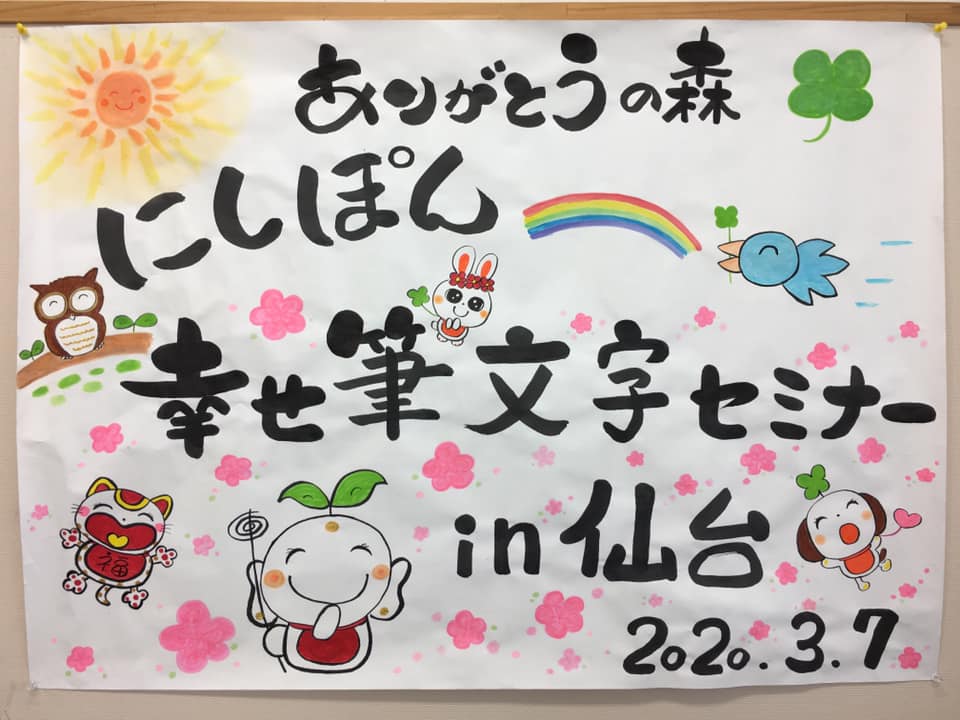 ありがとうの森
にしぽん
幸せ筆文字セミナー
in仙台
福
2020.3.7